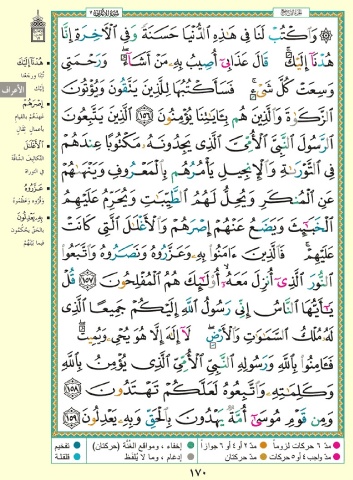 ۞ وَاكْتُبْ لَنَا فِي هَٰذِهِ الدُّنْيَا حَسَنَةً وَفِي الْآخِرَةِ إِنَّا
هُدْنَا إِلَيْكَ ۚ قَالَ عَذَابِي أُصِيبُ بِهِ مَنْ أَشَاءُ ۖ وَرَحْمَتِي
وَسِعَتْ كُلَّ شَيْءٍ ۚ فَسَأَكْتُبُهَا لِلَّذِينَ يَتَّقُونَ وَيُؤْتُونَ
الزَّكَوٰةَ وَالَّذِينَ هُم بِـَٔايَٰتِنَا يُؤْمِنُونَ ١٥٦ الَّذِينَ يَتَّبِعُونَ
الرَّسُولَ النَّبِيَّ الْأُمِّيَّ الَّذِي يَجِدُونَهُ مَكْتُوبًا عِندَهُمْ
فِي التَّوْرَىٰةِ وَالْإِنجِيلِ يَأْمُرُهُم بِالْمَعْرُوفِ وَيَنْهَىٰهُمْ
عَنِ الْمُنكَرِ وَيُحِلُّ لَهُمُ الطَّيِّبَٰتِ وَيُحَرِّمُ عَلَيْهِمُ
الْخَبَٰٓئِثَ وَيَضَعُ عَنْهُمْ إِصْرَهُمْ وَالْأَغْلَٰلَ الَّتِي كَانَتْ
عَلَيْهِمْ ۚ فَالَّذِينَ ءَامَنُوا بِهِ وَعَزَّرُوهُ وَنَصَرُوهُ وَاتَّبَعُوا
النُّورَ الَّذِي أُنزِلَ مَعَهُ ۙ أُولَٰئِكَ هُمُ الْمُفْلِحُونَ ١٥٧ قُلْ
يَٰٓأَيُّهَا النَّاسُ إِنِّي رَسُولُ اللَّهِ إِلَيْكُمْ جَمِيعًا الَّذِي
لَهُ مُلْكُ السَّمَٰوَٰتِ وَالْأَرْضِ ۖ لَا إِلَٰهَ إِلَّا هُوَ يُحْيِي وَيُمِيتُ ۖ
فَـَٔامِنُوا بِاللَّهِ وَرَسُولِهِ النَّبِيِّ الْأُمِّيِّ الَّذِي يُؤْمِنُ بِاللَّهِ
وَكَلِمَٰتِهِ وَاتَّبِعُوهُ لَعَلَّكُمْ تَهْتَدُونَ ١٥٨
وَمِن قَوْمِ مُوسَىٰ أُمَّةٌ يَهْدُونَ بِالْحَقِّ وَبِهِ يَعْدِلُونَ ١٥٩
الأعراف
هُدْنَا إِلَيْكَ
تُبْنَا ورجعنا
إليك
إِصْرَهُمْ
عهدهم بالقيام
بأعمال ثقال
الْأَغْلَٰلَ
التكاليف الشاقة
في التوراة
عَزَّرُوهُ
وقّروه وعظّموه
بِهِ يَعْدِلُونَ
بالحق يحكمون
فيما بينهم
مدّ ٦ حركات لزوماً
مدّ ٢ أو ٤ أو ٦ جوازاً
إخفاء، ومواقع الغُنَّة (حركتان)
تفخيم
مدّ واجب ٤ أو ٥ حركات
مدّ حركتان
إدغام، وما لا يُلفظ
قلقلة
١٧٠